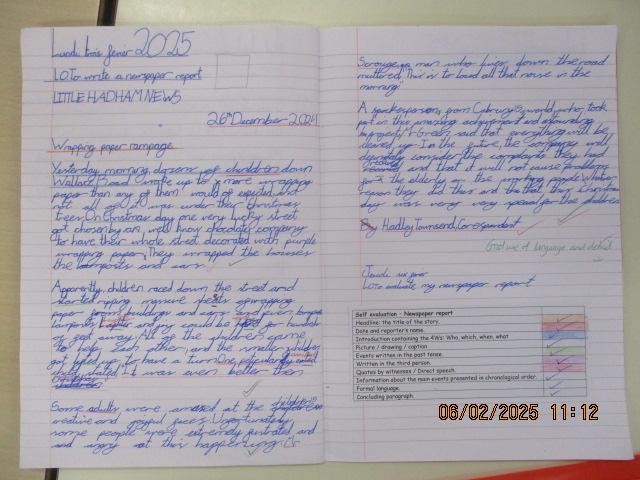 Lundi trois fevier 2025
LO To write a newspaper report
LITTLE HADHAM NEWS
26th December 2024
Wrapping paper rampage
Yesterday morning, dozens of children down
Wallace Road woke up to more wrapping
paper than any of them would of expected but
not all of it was under their christmas
trees. On Christmas day one very lucky street
got chosen by an, well know chocolate company
to have their whole street decorated with purple
wrapping paper. They wrapped the houses
the lamposts and cars.
Apparently, children raced down the street and
started ripping massive of wrapping
paper from buildings and cars and even
lamposts. and joy could be for hundreds
of feet away. All of the children came
to help each other and the smaller children
got lifted up to have a turn. One particularly
child stated "it was even better then
Some adults were amazed at the children's
creative and joyful faces. Unfortunately
some people were extremely frustrated and
and angry at this happening. Mr
Scrouge, a man who lives down the road
muttered, "This is to loud all that noise in the
morning."
A spokesperson from Cabrury's world who took
part in the amazing and
Mr Green said that everything will be
cleared up. In the future, the company will
definitely consider the complaints they had
received and that it will not cause problems
for the elderly or the people. What
reason they did this and that their Christmas
day was very very special for the children
By Hadley Townsend, Corespondent
Good use of language and detail
Jeudi six
LO To evaluate my newspaper report
Self evaluation – Newspaper report
Headline: the title of the story.
Date and reporter's name.
Introduction containing the 4Ws: Who, which, when, what
Picture / drawing / caption
Events written in the past tense.
Written in the third person.
Quotes by witnesses / Direct speech.
Information about the main events presented in chronological order.
Formal language.
Concluding paragraph.
06/02/2025 11:12